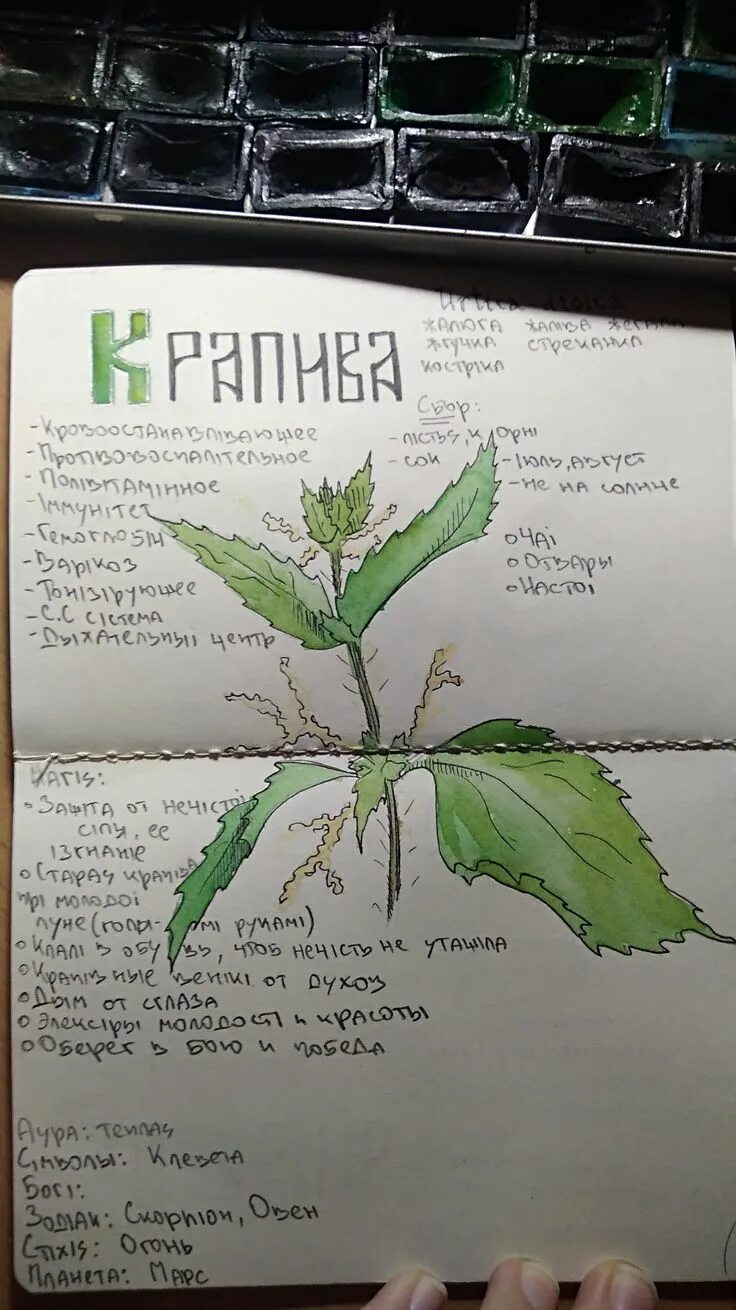 Urtica dioica
Крапива
жалюга жалива жегала
жгучка стрекание
костріка
Сбор:
- Кровоостанавлівающее
- Протівовоспалітельное
- Полівітамінное
- Іммунітет
- Гемоглобін
- Варікоз
- Тонізірующее
- С.С сістема
- Дыхательныі центр
- лістья, корні
- сок
- Іюль, август
- не на солнце
Чаі
Отвары
Настоі
Магія:
Защіта от нечістоі
сілы, ее
ізгнаніе
Старая крапіва
прі молодоі
луне (голымі рукамі)
Клалі в обувь, чтоб нечість не утащіла
Крапівные венікі от духов
Дым от сглаза
Элексіры молодості и красоты
Оберег в бою и победа
Аура: теплая
Сімволы: Клевета
Богі:
Зодіак: Скорпіон, Овен
Стіхія: Огонь
Планета: Марс